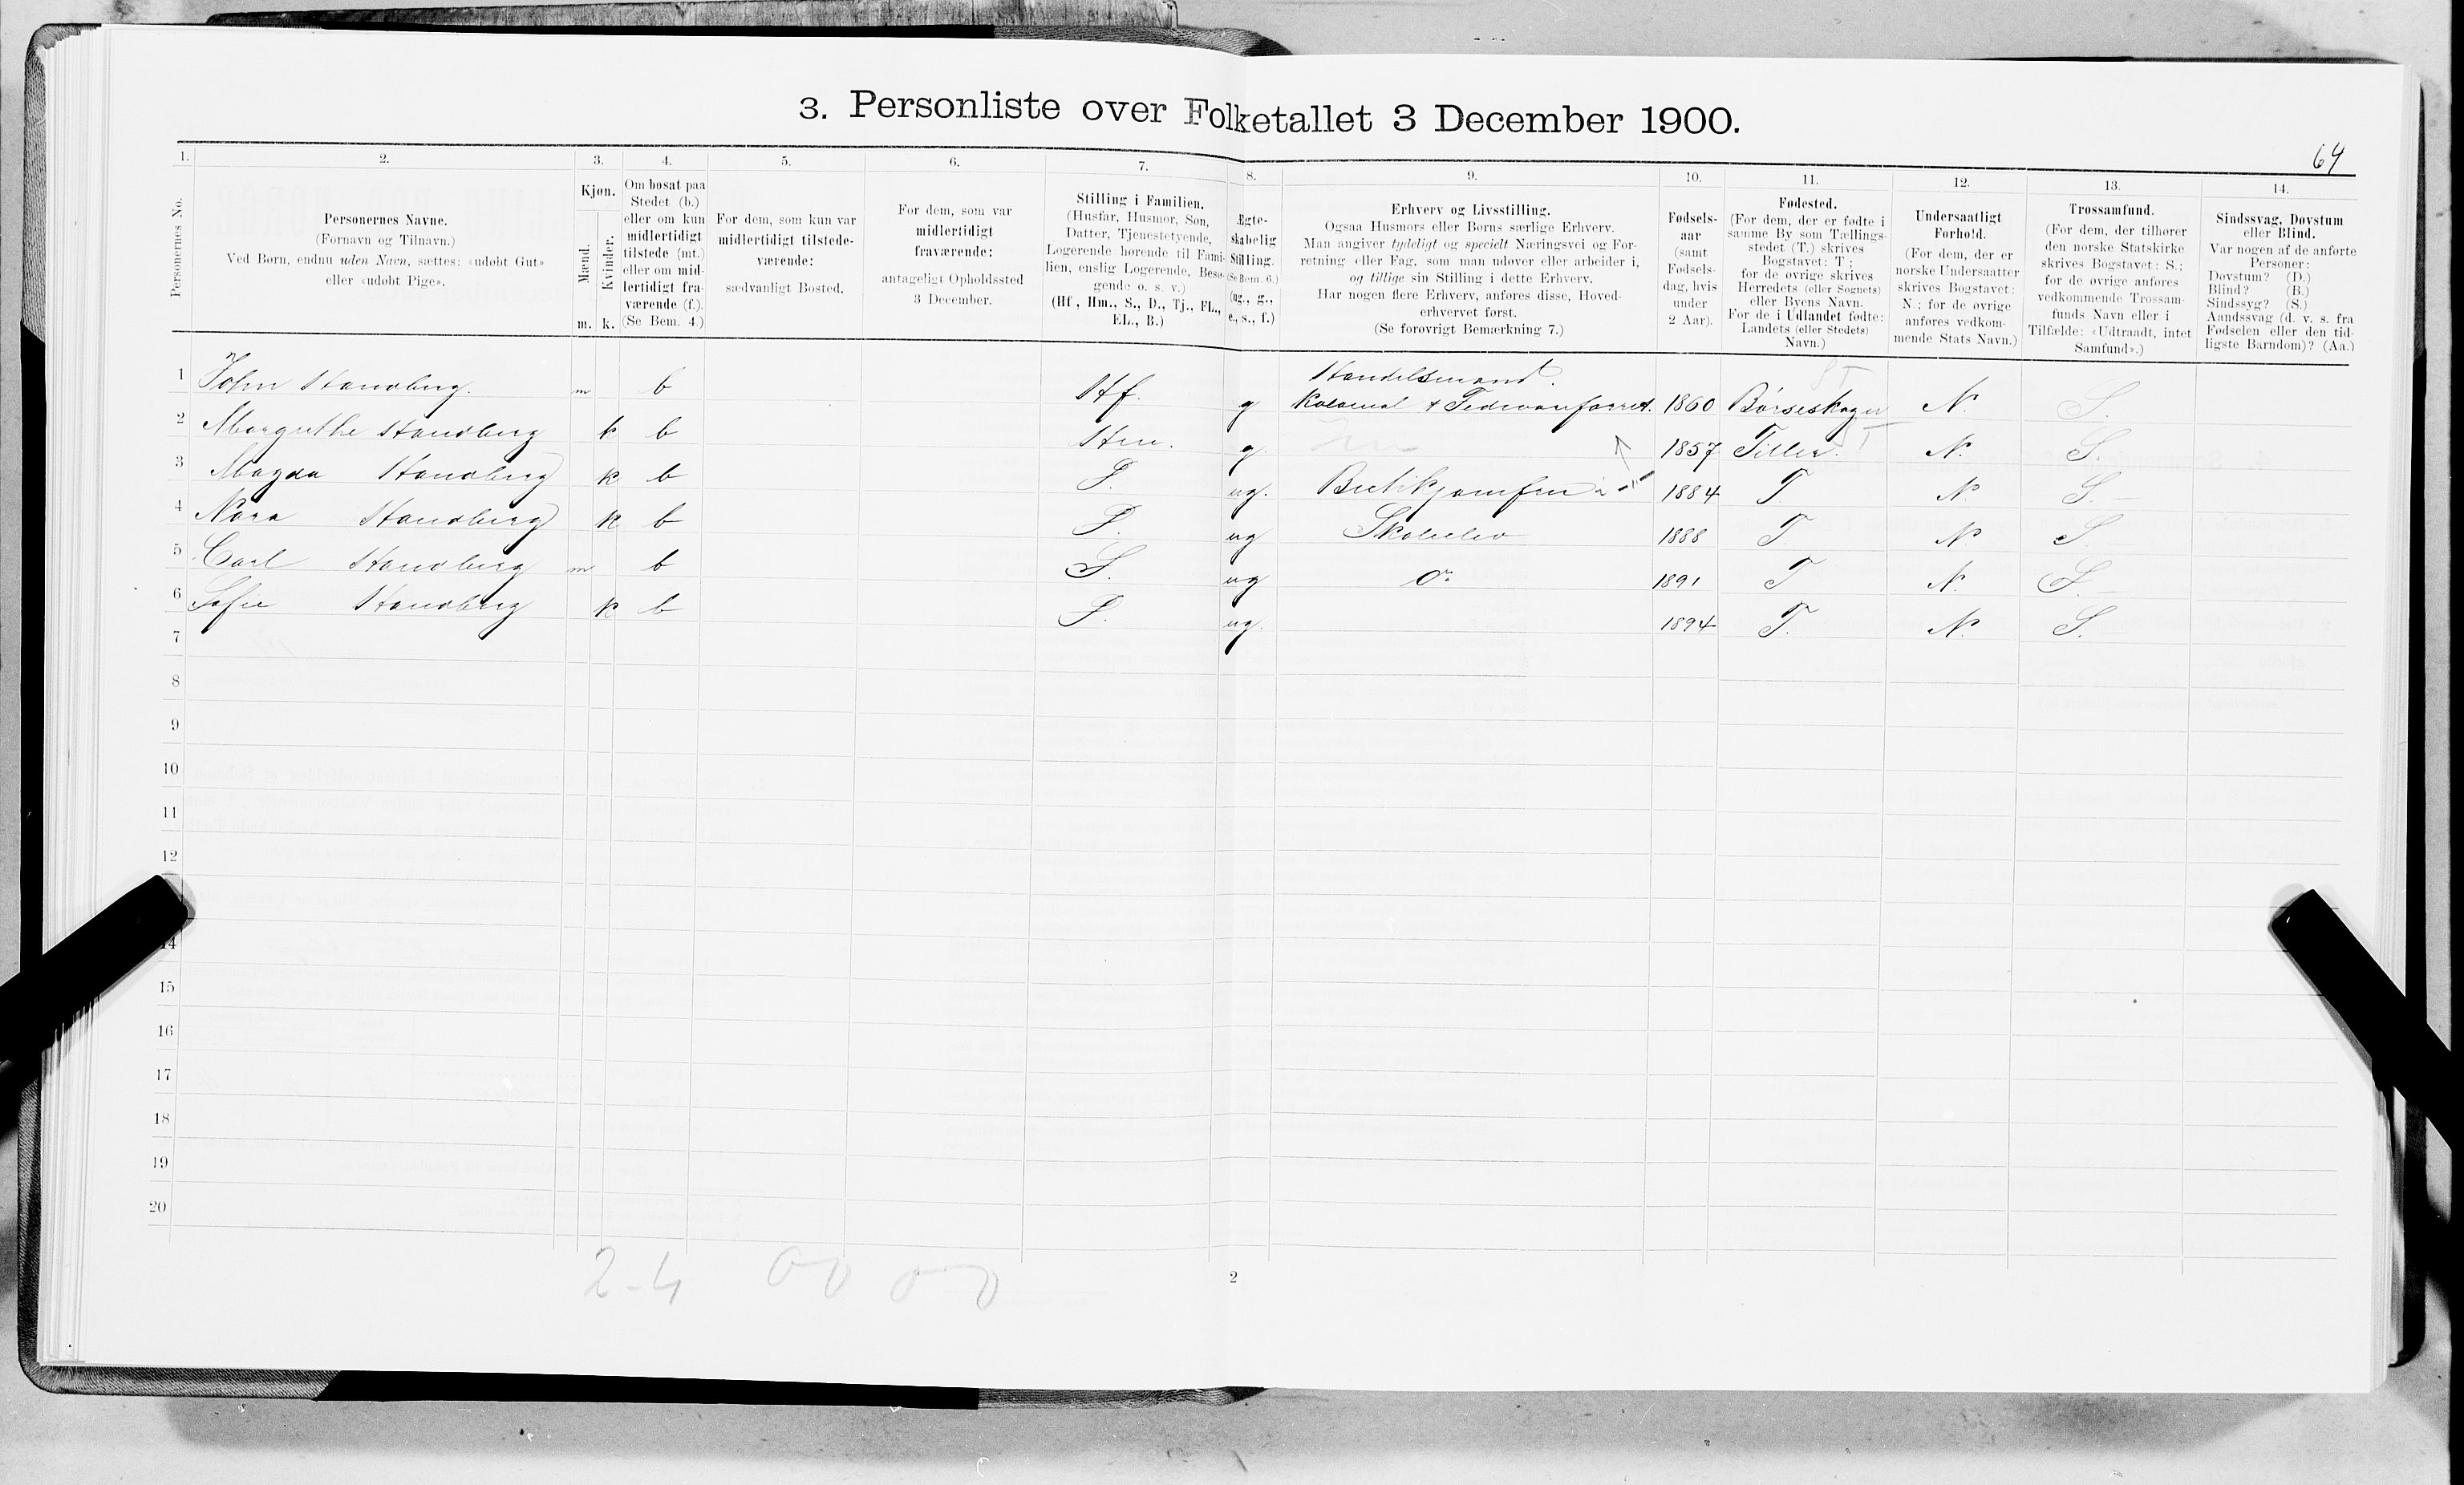 3. Personliste over Folketallet 3 December 1900.
64
1. 2. 3. 4. 5. 6. 7. 8. 9. 10. 11. 12. 13. 14.
Personernes No.
Personernes Navne.
(Fornavn og Tilnavn.)
Ved Børn, endnu uden Navn, sættes: «udøbt Gut»
eller «udøbt Pige».
Kjøn.
Mænd.
Kvinder.
m. k.
Om bosat paa
Stedet (b.)
eller om kun
midlertidigt
tilstede (mt.)
eller om mid-
lertidigt fra-
værende (f.).
(Se Bem. 4.)
For dem, som kun var
midlertidigt tilstede-
værende:
sædvanligt Bosted.
For dem, som var
midlertidigt
fraværende:
antageligt Opholdssted
3 December.
Stilling i Familien.
(Husfar, Husmor, Søn,
Datter, Tjenestetyende,
Logerende hørende til Fami-
lien, enslig Logerende, Besø-
gende o. s. v.)
(Hf., Hm., S., D., Tj., FL.,
EL., B.)
Ægte-
skabelig
Stilling.
(Se Bem. 6.)
(ug., g.,
e., s., f.)
Erhverv og Livsstilling.
Ogsaa Husmors eller Børns særlige Erhverv.
Man angiver tydeligt og specielt Næringsvei og For-
retning eller Fag, som man udøver eller arbeider i,
og tillige sin Stilling i dette Erhverv.
Har nogen flere Erhverv, anføres disse, Hoved-
erhvervet først.
(Se forøvrigt Bemærkning 7.)
Fødsels-
aar
(samt
Fødsels-
dag, hvis
under
2 Aar).
Fødested.
(For dem, der er fødte i
samme By som Tællings-
stedet (T.) skrives
Bogstavet: T;
for de øvrige skrives
Herredets (eller Sognets)
eller Byens Navn.
For de i Udlandet fødte:
Landets (eller Stedets)
Navn.)
Undersaatligt
Forhold.
(For dem, der er
norske Undersaatter
skrives Bogstavet:
N.; for de øvrige
anføres vedkom-
mende Stats Navn.)
Trossamfund.
(For dem, der tilhører
den norske Statskirke
skrives Bogstavet: S.;
for de øvrige anføres
vedkommende Trossam-
funds Navn eller i
Tilfælde: «Udtraadt, intet
Samfund».)
Sindssvag, Døvstum
eller Blind.
Var nogen af de anførte
Personer:
Døvstum? (D.)
Blind? (B.)
Sindssyg? (S.)
Aandssvag (d. v. s. fra
Fødselen eller den tid-
ligste Barndom)? (Aa.)
Handelsmand.
1 John Handberg. m b Hf. g Kolonial & Fedevareforret. 1860 Børseskogn N. S.
2 Margrethe Handberg k b Hm. g. 1857 Tiller. N. S.
3 Magda Handberg k b D. ug. Butikjomfru 1884 T N S.
4 Nora Handberg k b D. ug Skoleelev 1888 T N S.
5 Carl Handberg m b S. ug Do 1891 T N. S.
6 Sofie Handberg k b D. ug. 1894 T. N. S.
7
8
9
10
11
12
14
15
16
17
18
19
20
2-4 0 0 0 0
2